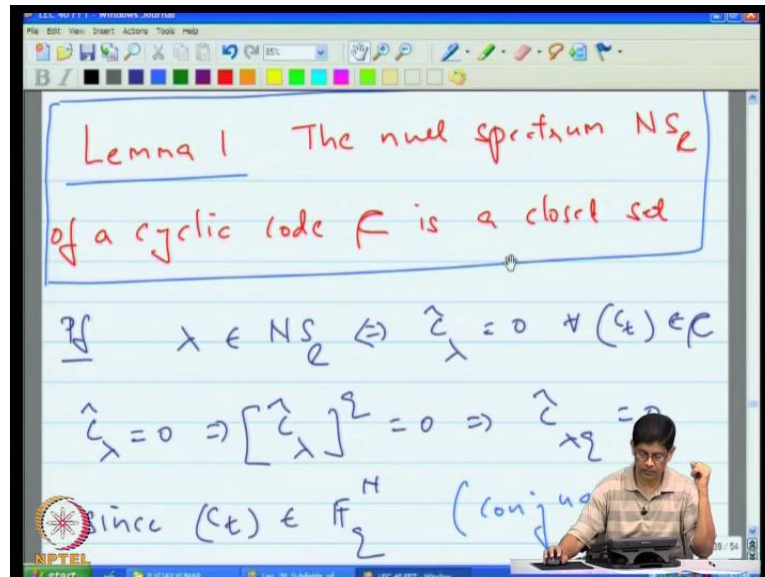 LEC 40 FFT - Windows Journal
File Edit View Insert Actions Tools Help
85%
B I
Lemma 1 The null spectrum NS_C
of a cyclic code C is a closed set
Pf λ ∈ NS_C ⇔ ĉ_λ = 0 ∀ (c_t) ∈ C
ĉ_λ = 0 ⇒ [ĉ_λ]^q = 0 ⇒ ĉ_λq = 0
since (c_t) ∈ F_q^N (conjug
39 / 54
NPTEL
start
LEC 40 FFT - Windows